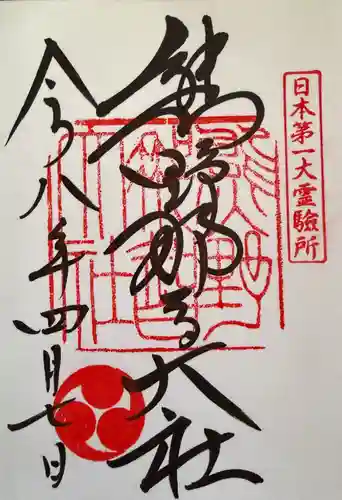 日本第一大霊験所
熊野那智大社
令和八年四月七日